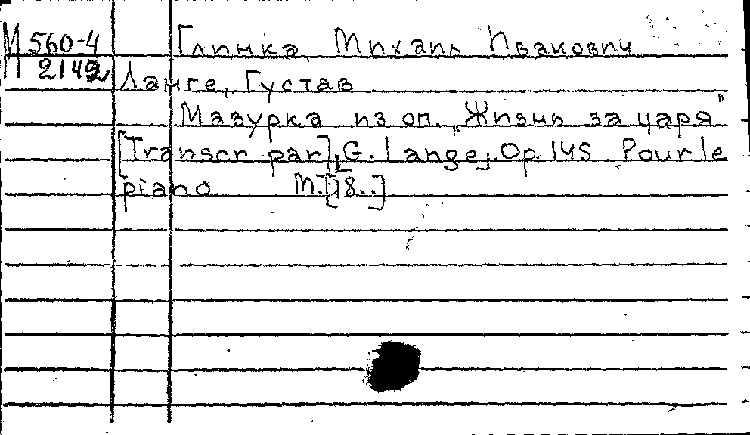 М 560-4 Глинка Михаил Иванович
2149 Ланге, Густав
Мазурка из оп. „Жизнь за царя"
[Transcr par] G. Lange. Op 145 Pour le
piano М. [18..]